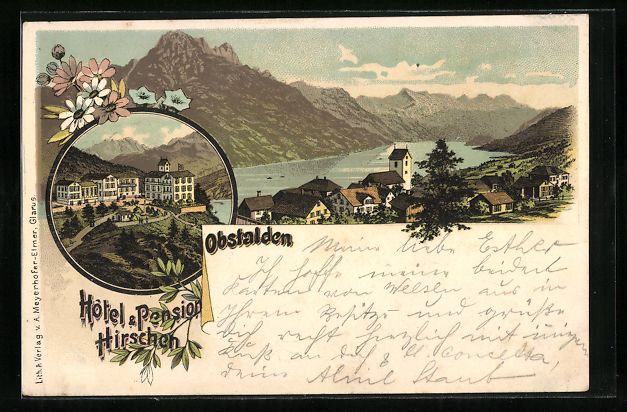 Obstalden
Hôtel & Pension
Hirschen
Lith. & Verlag v. A. Meyerhofer-Elmer, Glarus.
Meine liebe Esther
Ich hoffe meine beiden
Karten von Weesen aus in
Ihrem Besitze und grüße
dich recht herzlich mit
Kuß an dich &
deine Staub